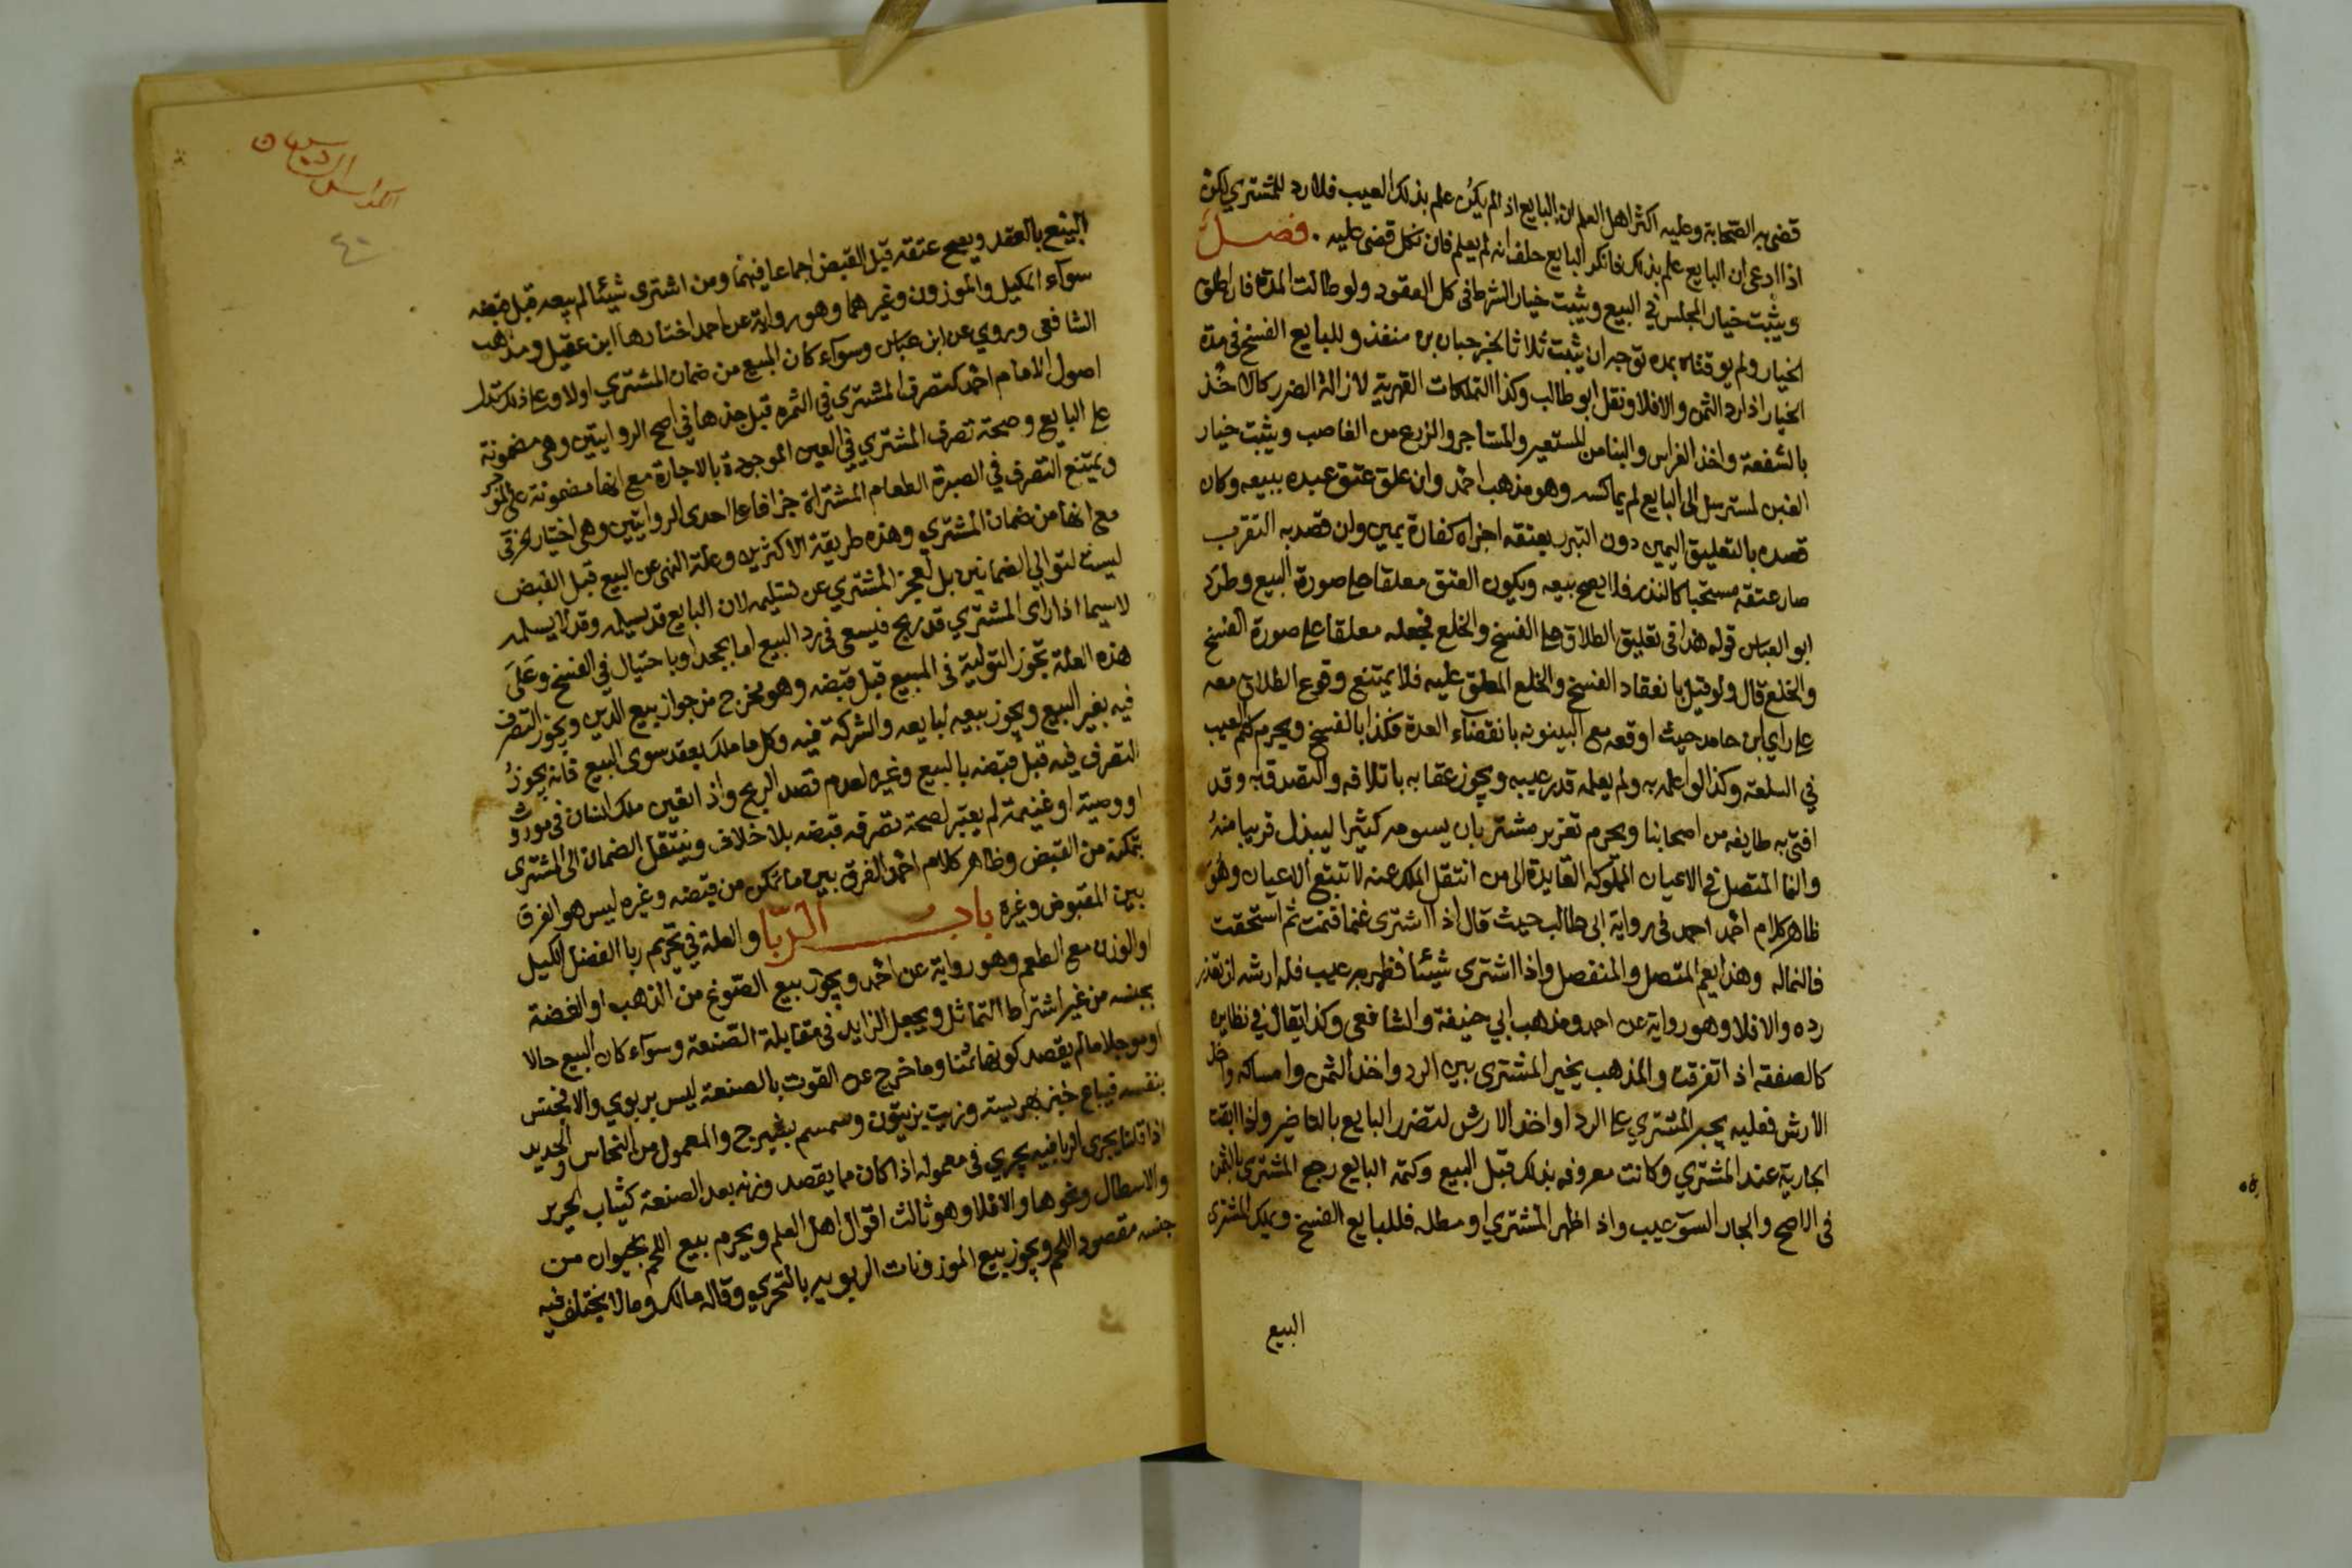 قضى به الصحابة وعليه اكثر اهل العلم ان البايع اذا لم يكن علم بذلك العيب فلا رد للمشتري لكن
اذا ادعى ان البايع علم بذلك فانكر البايع حلف انه لم يعلم فان نكل قضى عليه . فصل
ويثبت خيار المجلس في البيع ويثبت خيار الشرط في كل العقود ولو طالت المدة فان اطلق
الخيار ولم يوقتاه بمده توجه ان يثبت ثلاثا لخبر حبان بن منقذ وللبايع الفسخ في مدة
الخيار اذا رد الثمن والا فلا ونقل ابو طالب وكذا التملكات القهرية لازالة الضرر كالاخذ
بالشفعة واخذ الغراس والبنا من المستعير والمستاجر والزرع من الغاصب ويثبت خيار
الغبن لمسترسل الى البايع لم يماكسه وهو مذهب احمد وان علق عتق عبده ببيعه وكان
قصده بالتعليق اليمين دون التبرر بعتقه اجزاه كفارة يمين وان قصد به التقرب
صار عتقه مستحبا كالنذر فلا يصح بيعه ويكون العتق معلقا على صورة البيع وطرد
ابو العباس قوله هذا في تعليق الطلاق على الفسخ والخلع فجعله معلقا على صورة الفسخ
والخلع قال ولو قيل بانعقاد الفسخ والخلع المعلق عليه فلا يمتنع وقوع الطلاق معه
على راي ابن حامد حيث اوقعه مع البينونة بانقضاء العدة فكذا بالفسخ ويحرم كتم العيب
في السلعة وكذا لو اعلمه به ولم يعلمه قدر عيبه ويجوز عقابه باتلافه والتصدق به وقد
افتى به طايفه من اصحابنا ويحرم تغرير مشتر بان يسومه كثيرا ليبذل قريبا منه
والنما المتصل في الاعيان المملوكه العايدة الى من انتقل الملك عنه لا تتبع الاعيان وهو
ظاهر كلام احمد احمد في رواية ابي طالب حيث قال اذا اشترى غنما فنمت ثم استحقت
فالنما له وهذا يعم المتصل والمنفصل واذا اشترى شيئا فظهر به عيب فله ارشه ان تعذر
رده والا فلا وهو رواية عن احمد ومذهب ابي حنيفة والشافعي وكذا يقال في نظايره
كالصفقه اذا تفرقت والمذهب يخير المشتري بين الرد واخذ الثمن وامساكه واخذ
الارش فعليه يجبر المشتري على الرد او اخذ الارش لتضرر البايع بالتاخير واذا ابقت
الجارية عند المشتري وكانت معروفه بذلك قبل البيع وكتمه البايع رجع المشتري بالثمن
في الاصح والجار السوء عيب واذا ظهر المشتري او مطله فللبايع الفسخ ويملك المشتري
البيع
٤٠
البيع بالعقد ويصح عتقه قبل القبض اجماعا فيهما ومن اشترى شيئا لم يبعه قبل قبضه
سواء المكيل والموزون وغيرهما وهو رواية عن احمد اختارها ابن عقيل ومذهب
الشافعي وروي عن ابن عباس وسواء كان المبيع من ضمان المشتري اولا وعلى ذلك تدل
اصول الامام احمد كتصرف المشتري في الثمره قبل جذها في اصح الروايتين وهي مضمونة
على البايع وصحة تصرف المشتري في العين الموجودة بالاجارة مع انها مضمونة على الموجر
ويمتنع التصرف في الصبرة الطعام المشتراة جزافا على احدى الروايتين وهي اختيار الخرقي
مع انها من ضمان المشتري وهذه طريقة الاكثرين وعلة النهي عن البيع قبل القبض
ليست لتوالي الضمانين بل لعجز المشتري عن تسليمه لان البايع قد يسلمه وقد لا يسلمه
لا سيما اذا راى المشتري قد ربح فيسعى في رد البيع اما بجحد او باحتيال في الفسخ وعلى
هذه العلة تجوز التولية في المبيع قبل قبضه وهو مخرج من جواز بيع الدين ويجوز التصرف
فيه بغير البيع ويجوز بيعه لبايعه والشركة فيه وكل ما ملك بعقد سوى البيع فانه يجوز
التصرف فيه قبل قبضه بالبيع وغيره لعدم قصد الربح واذا تعين ملك انسان في موروث
او وصية او غنيمة لم يعتبر لصحة تصرفه قبضه بلا خلاف وينتقل الضمان الى المشتري
بتمكنه من القبض وظاهر كلام احمد الفرق بين ما تمكن من قبضه وغيره ليس هو الفرق
بين المقبوض وغيره باب الربا والعلة في تحريم ربا الفضل الكيل
او الوزن مع الطعم وهو رواية عن احمد ويجوز بيع المصوغ من الذهب او الفضة
بجنسه من غير اشتراط التماثل ويجعل الزايد في مقابلة الصنعة وسواء كان البيع حالا
او موجلا ما لم يقصد كونها ثمنا وما خرج عن القوت بالصنعة ليس بربوي والا فجنس
بنفسه فيباع خبز بهريسة وزيت بزيتون وسمسم بشيرج والمعمول من النحاس والحديد
اذا قلنا يجري الربا فيه يجري في معموله اذا كان مما يقصد وزنه بعد الصنعة كثياب الحرير
والاسطال ونحوها والا فلا وهو ثالث اقوال اهل العلم ويحرم بيع اللحم بحيوان من
جنسه مقصود اللحم ويجوز بيع الموزونات الربويه بالتحري وقاله مالك وما لا يختلف فيه